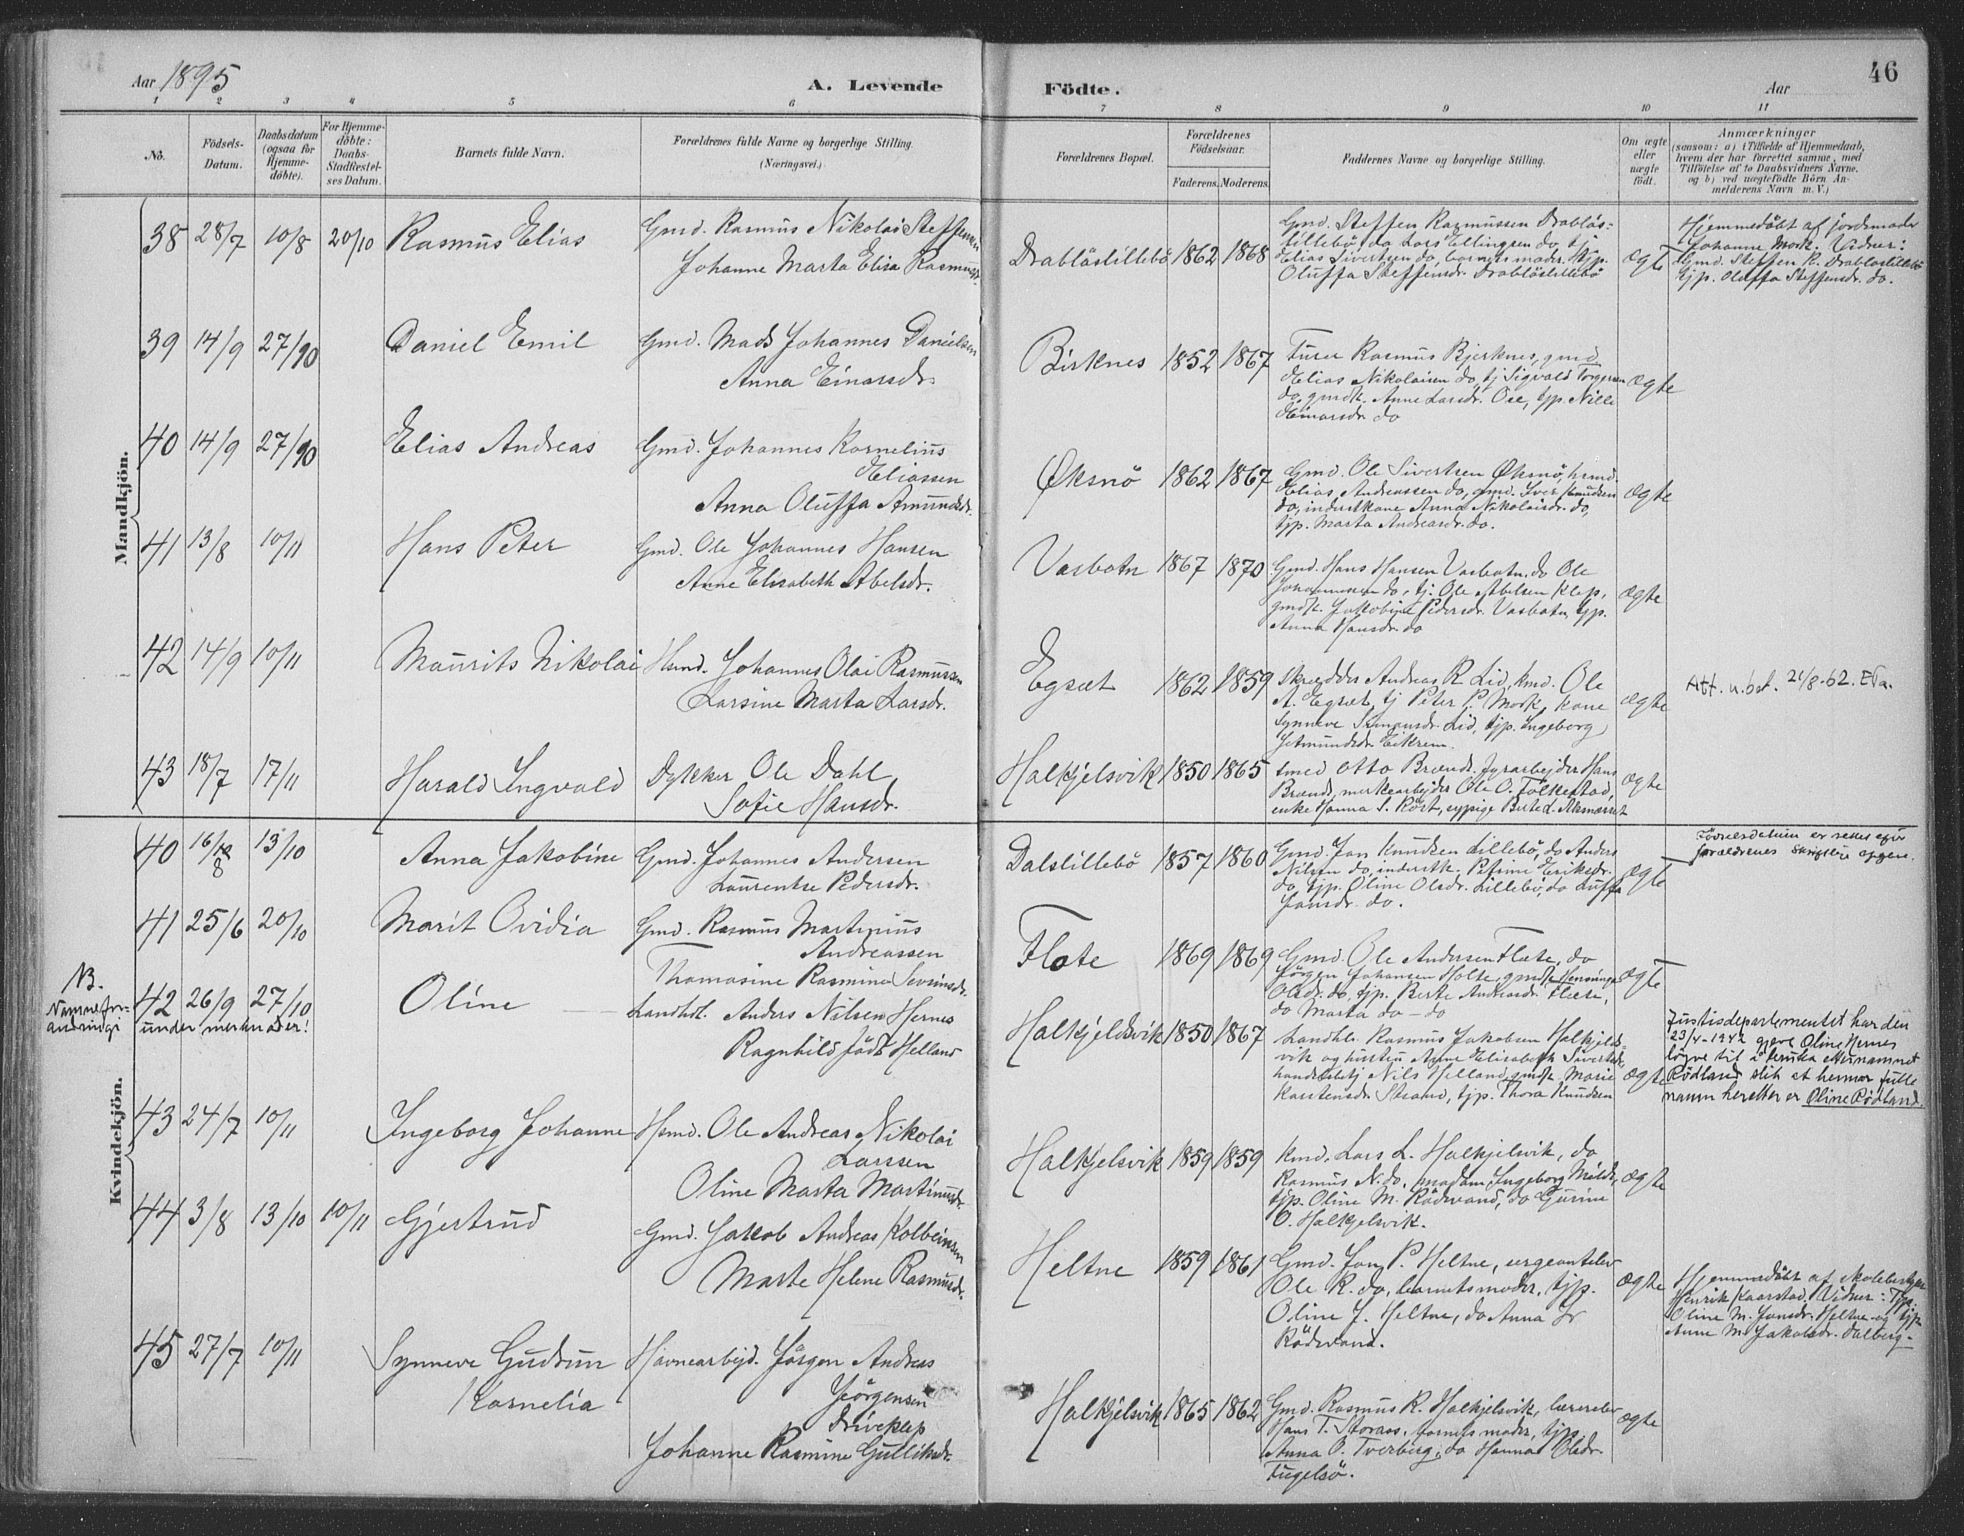 Aar 1895
A. Levende Födte.
Aar
46
1 2 3 4 5 6 7 8 9 10 11
No.
Födsels-Datum.
Daabsdatum (ogsaa for Hjemme-döbte).
For Hjemme-döbte: Daabs-Stadfestel-ses Datum.
Barnets fulde Navn.
Forældrenes fulde Navne og borgerlige Stilling. (Næringsvei.)
Forældrenes Bopæl.
Forældrenes Födselsaar.
Faderens. Moderens.
Faddernes Navne og borgerlige Stilling.
Om ægte eller uægte födt.
Anmærkninger
(saasom: a) i Tilfælde af Hjemmedaab,
hvem der har forrettet samme, med
Tilföielse af to Daabsvidners Navne.
og b) ved uægtefödte Börn An-
melderens Navn m. V.)
Mandkjön.
38 28/7 10/8 20/10 Rasmus Elias
Gmd. Rasmus Nikolai Steffensen
Johanne Marta Elisa Rasmusd.
Drabløslillebö 1862 1868
Gmd. Steffen Rasmussen Drabløs-
lillebö, do Lars Ellingsen do, tj.
Elias Sivertsen do, barnets moder, tjp.
Oluffa Steffensdr. Drabløslillebö
ægte
Hjemmedöbt af jordemoder
Johanne Mork. Vidner:
Gmd. Steffen R. Drabløslillebö
tjp. Oluffa Steffensdr. do.
39 14/9 27/90 Daniel Emil
Gmd. Mads Johannes Danielsen
Anna Einarsdr.
Birknes 1852 1867
Furer Rasmus Bjerknes, gmd
Elias Nikolaisen do, tj Sigvald Torgersen
do, gmdk. Anne Larsdr. Ose, tjp. Nille
Einarsdr. do
ægte
40 14/9 27/90 Elias Andreas
Gmd. Johannes Kornelius
Eliassen
Anna Oluffa Amundsdr.
Øksnö 1862 1867
Gmd. Ole Sivertsen Øksnö, hsmd
Elias Andreassen do, gmd. Iver Knudsen
do, inderstkone Anna Nikolaisdr. do,
tjp. Marta Andreasdr. do.
ægte
41 13/8 10/11 Hans Peter
Gmd. Ole Johannes Hansen
Anne Elisabeth Abelsdr.
Vasbotn 1867 1870
Gmd. Hans Hansen Vasbotn, do Ole
Johannessen do, tj. Ole Abelsen Klep,
gmdk. Jakobine Pedersdr. Vasbotn, tjp.
Anna Hansdr. do
ægte
42 14/9 10/11 Maurits Nikolai
Hsmd. Johannes Olai Rasmussen
Larsine Marta Larsdr.
Egsæt 1862 1859
Skrædder Andreas R Lid, hmd. Ole
A. Egsæt, tj Peter P. Mork, kone
Synneve Simonsdr. Lid, tjp. Ingeborg
Jetmundsdr. Eikrem.
ægte
Att. u.bet. 21/8-62. ENa.
43 18/7 17/11 Harald Ingvald
Dykker Ole Dahl,
Sofie Hansdr.
Halkjelsvik 1850 1865
Smed Otto Brænd. fyrarbejder Hans
Brænd, merkearbejder Ole O. Folkestad,
enke Hanna S. Röst, sypige Berte L. Aasmæset
ægte
Kvindekjön.
40 16/8 13/10 Anna Jakobine
Gmd. Johannes Andersen
Laurentse Pedersdr.
Dalslillebö 1857 1860
Gmd. Jon Knudsen Lillebö, do Anders
Nilsen do, inderstk. Petrine Eriksdr.
do, tjp. Oline Olsdr. Lillebö, do Luffa
Jonsdr. do.
ægte
Födselsdatum er rettet efter
forældrenes skriftlige opgave.
41 25/6 20/10 Marit Ovidia
Gmd. Rasmus Martinius
Andreassen
Thomasine Rasmine Severinsdr.
Flote 1869 1869
Gmd. Ole Andersen Flote, do
Jörgen Johansen Holte, gmdk Henninge
Olsdr. do, tjp. Berte Andreasdr. Flote,
do Marta do - do
ægte
NB.
Namnefor-
andring i
under merknader!
42 26/9 27/10 Oline
Landhdl. Anders Nilsen Hernes
Ragnhild född Helland
Halkjeldsvik 1850 1867
Landhl. Rasmus Jakobsen Halkjelds-
vik og hustru Anne Elisabeth Sivertsdr,
handelsbetj Nils Helland, gmdk Marie
Karstensdr. Strand, tjp. Thora Knudsen
ægte
Justisdepartementet har den
23/4-1942 gjeve Oline Hernes
løyve til å bruka etternamnet
Rødland slik at hennar fulle
namn heretter er Oline Rødland.
43 24/7 10/11 Ingeborg Johanne
Hsmd. Ole Andreas Nikolai
Larssen
Oline Marta Martinusdr.
Halkjelsvik 1859 1859
Kmd. Lars L. Halkjelsvik, do
Rasmus N. do, madam Ingeborg Molde,
tjp. Oline M. Rödvand, do Gurine
O. Halkjelsvik.
ægte
44 3/8 13/10 10/11 Gjertrud
Gmd. Jakob Andreas Kolbeinsen
Marte Helene Rasmusdr.
Heltne 1859 1861
Gmd. Jon P. Heltne, sergeantelev
Ole R. do, barnets moder, tjp.
Oline J. Heltne, do Anna Gr
Rödvand.
ægte
Hjemmedöbt af skolebestyrer
Henrik Kaarstad. Vidner: Tjp.
Oline M. Jonsdr. Heltne og tjp
Anne M. Jakobsdr. Dalberg-
45 27/7 10/11 Synneve Gudrun
Kornelia
Havnearbejd. Jörgen Andreas
Jörgensen
Driveklep
Johanne Rasmine Gulliksdr.
Halkjelsvik 1865 1862
Gmd. Rasmus R. Halkjelsvik, lærerelev
Hans T. Storaas, barnets moder, tjp.
Anna O. Tverberg, do Hanna Olsdr.
Fugelsö.
ægte